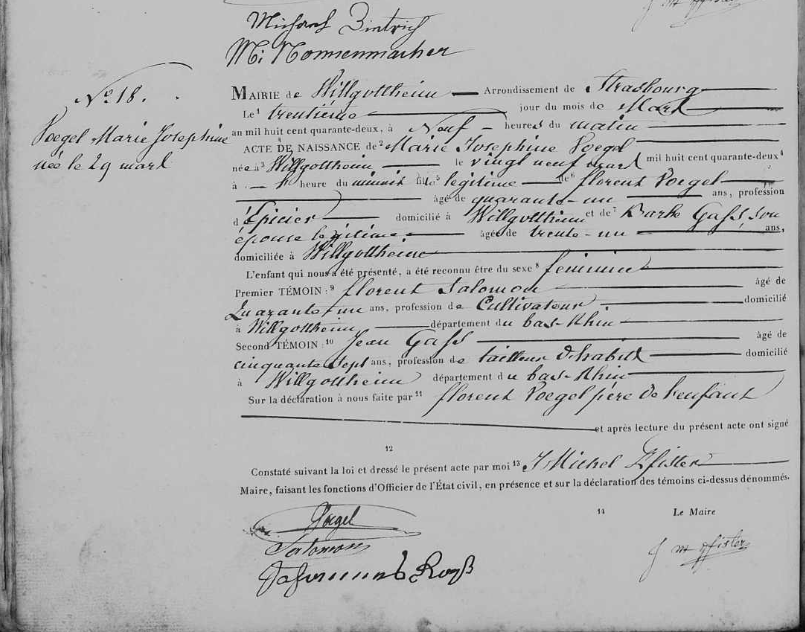 Michael Dietrich
Mi Nonnenmacher
No 18.
Voegel Marie Josephine
née le 29 mars
MAIRIE de Willgottheim Arrondissement de Strasbourg
Le1 trentième jour du mois de Mars
an mil huit cent quarante-deux, à Neuf heures du matin
ACTE DE NAISSANCE de2 Marie Josephine Voegel
née à3 Willgottheim le vingt neuf mars mil huit cent quarante-deux4
à heure du minuit fille5 legitime de6 florent Voegel
âgé de quarante-un ans, profession
d'Épicier domicilié à Willgottheim et de7 Barbe Gass, son
épouse legitime âgée de trente-un ans,
domiciliée à Willgottheim
L'enfant qui nous a été présenté, a été reconnu être du sexe8 feminin
PREMIER TÉMOIN:9 florent Salomon âgé de
Quarante un ans, profession de Cultivateur domicilié
à Willgottheim département du bas-Rhin
SECOND TÉMOIN:10 Jean Gass âgé de
cinquante sept ans, profession de tailleur d'habits domicilié
à Willgottheim département du bas-Rhin
Sur la déclaration à nous faite par11 florent Voegel père de l'enfant
et après lecture du présent acte ont signé
12
Constaté suivant la loi et dressé le présent acte par moi13 J Michel Pfister
Maire, faisant les fonctions d'Officier de l'État civil, en présence et sur la déclaration des témoins ci-dessus dénommés.
14 Le Maire
Voegel
Salomon
Johannes
J M Pfister